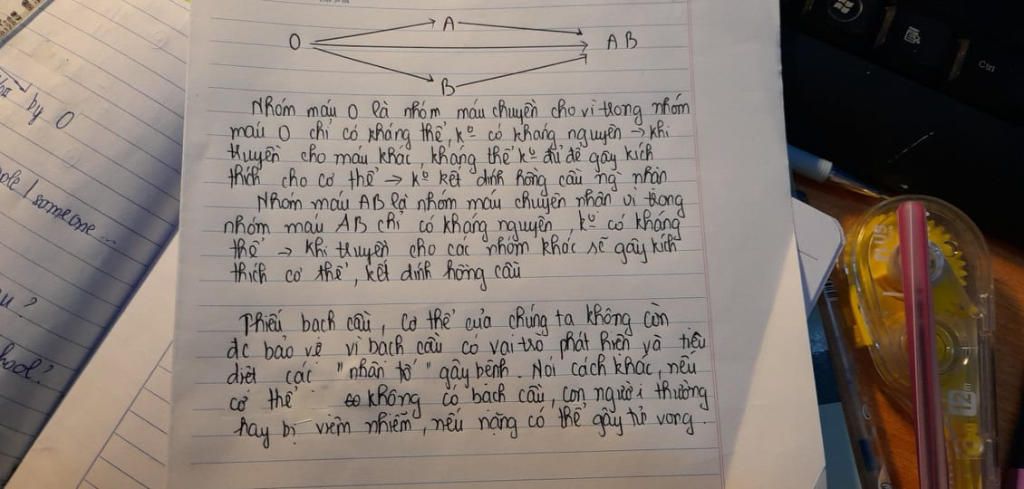 by O
hole / someone...
u?
hool?
A
O
AB
B
Nhóm máu O là nhóm máu chuyên cho vì trong nhóm
máu O chỉ có kháng thể, kº có kháng nguyên → khi
truyền cho máu khác, kháng thể kº đủ để gây kích
thích cho cơ thể → kº kết dính hồng cầu ng nhân
Nhóm máu AB là nhóm máu chuyên nhân vì trong
nhóm máu AB chỉ có kháng nguyên, kº có kháng
thể → khi truyền cho các nhóm khác sẽ gây kích
thích cơ thể, kết dính hồng cầu
Thiếu bạch cầu, cơ thể của chúng ta không còn
đc bảo vệ vì bạch cầu có vai trò phát hiện và tiêu
diệt các "nhân tố" gây bệnh. Nói cách khác, nếu
cơ thể không có bạch cầu, con người thường
hay bị viêm nhiễm, nếu nặng có thể gây tử vong.
Ctrl
PLUS
12m